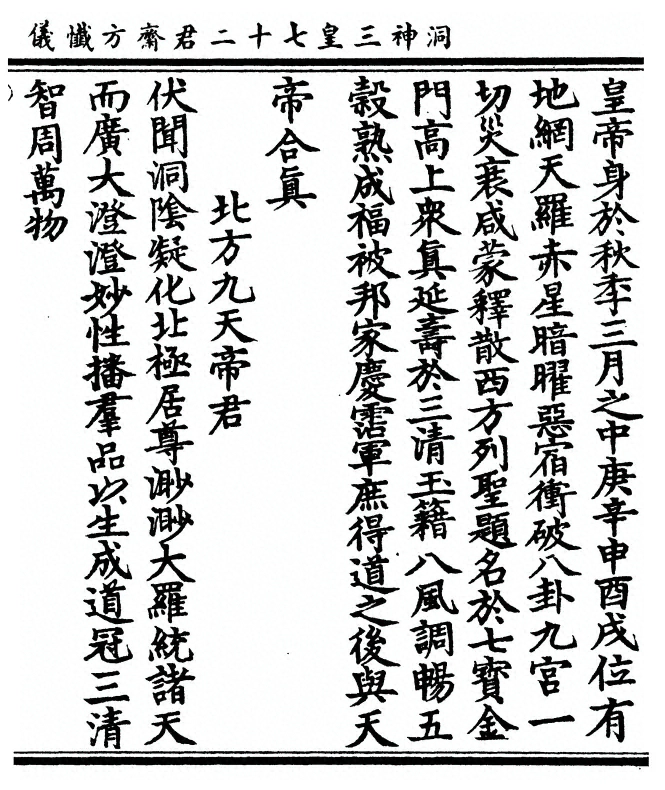 洞神三皇七十二君齋方懺儀
皇帝身於秋季三月之中庚辛申酉戌位有
地網天羅赤星暗曜惡宿衝破八卦九宮一
切災衰咸蒙釋散西方列聖題名於七寶金
門高上衆眞延壽於三清玉籍八風調暢五
穀熟成福被邦家慶霑軍庶得道之後與天
帝合眞
北方九天帝君
伏聞洞陰凝化北極居尊渺渺大羅統諸天
而廣大澄澄妙性播羣品以生成道冠三清
智周萬物